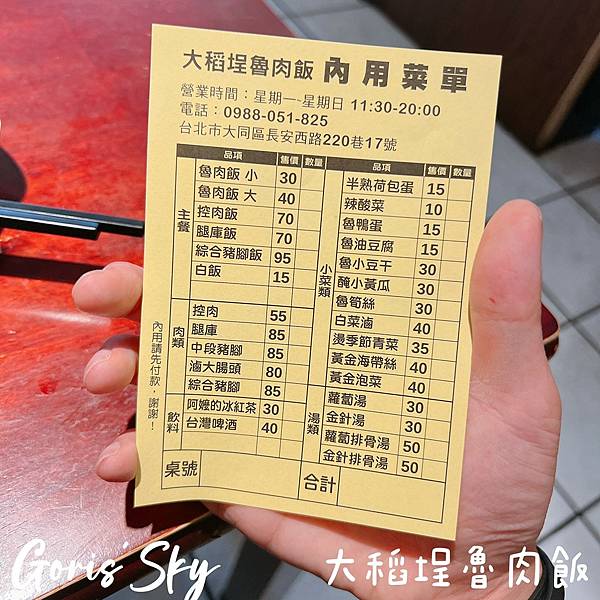 大稻埕魯肉飯 內用菜單
營業時間：星期一~星期日 11:30-20:00
電話：0988-051-825
台北市大同區長安西路220巷17號
品項 售價 數量
主餐
魯肉飯 小 30
魯肉飯 大 40
控肉飯 70
腿庫飯 70
綜合豬腳飯 95
白飯 15
肉類
控肉 55
腿庫 85
中段豬腳 85
滷大腸頭 80
綜合豬腳 85
飲料
阿嬤的冰紅茶 30
台灣啤酒 40
桌號
品項 售價 數量
小菜類
半熟荷包蛋 15
辣酸菜 10
魯鴨蛋 15
魯油豆腐 15
魯小豆干 30
醃小黃瓜 30
魯筍絲 30
白菜滷 40
燙季節青菜 35
黃金海帶絲 40
黃金泡菜 40
湯類
蘿蔔湯 30
金針湯 30
蘿蔔排骨湯 50
金針排骨湯 50
合計
內用請先付款，謝謝！
Goris' Sky 大稻埕魯肉飯